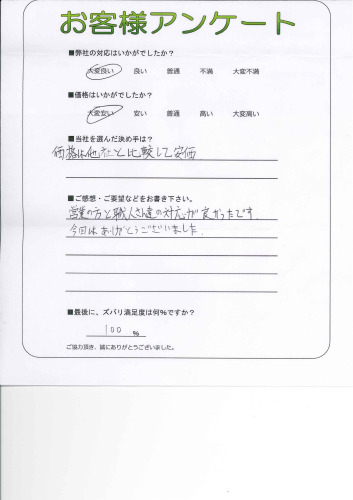 お客様アンケート
■弊社の対応はいかがでしたか？
大変良い 良い 普通 不満 大変不満
■価格はいかがでしたか？
大変安い 安い 普通 高い 大変高い
■当社を選んだ決め手は？
価格は他社と比較して安価
■ご感想・ご要望などをお書き下さい。
営業の方と職人さん達の対応が良かったです。
今回はありがとうございました。
■最後に、ズバリ満足度は何％ですか？
100 ％
ご協力頂き、誠にありがとうございました。